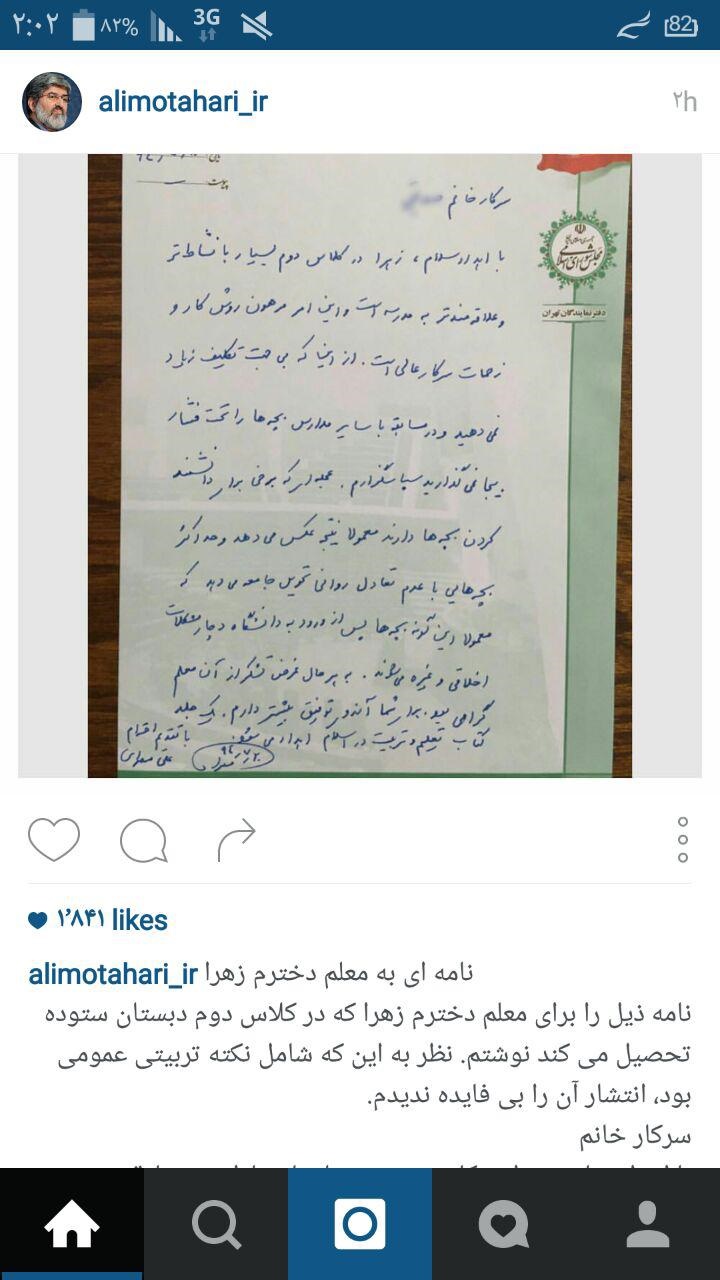 ۲:۰۲ ۸۲% 3G 82
alimotahari_ir ۲h
جمهوری اسلامی ایران
مجلس شورای اسلامی
دفتر نمایندگان تهران
پیوست
سرکار خانم
با اهداء سلام ، زهرا در کلاس دوم بسیار با نشاط‌تر
و علاقه‌مندتر به مدرسه است و این امر مرهون روش کار و
زحمات سرکار عالی است. از اینکه بی جهت تکلیف زیاد
نمی‌دهید و در مسابقه با سایر مدارس بچه‌ها را تحت فشار
بیجا نمی‌گذارید سپاسگزارم. عجله‌ای که برخی برای دانشمند
کردن بچه‌ها دارند معمولا نتیجه عکس می‌دهد و حداکثر
بچه‌هایی با عدم تعادل روانی تحویل جامعه می‌دهد که
معمولا این گونه بچه‌ها پس از ورود به دانشگاه دچار مشکلات
اخلاقی و غیره می‌شوند. به هر حال غرض تشکر از آن معلم
گرامی بود. برای شما آرزوی توفیق بیشتر دارم. یک جلد
کتاب تعلیم و تربیت در اسلام اهداء می‌شود.
با تقدیم احترام
علی مطهری
۱٬۸۴۱ likes
alimotahari_ir نامه ای به معلم دخترم زهرا
نامه ذیل را برای معلم دخترم زهرا که در کلاس دوم دبستان ستوده
تحصیل می کند نوشتم. نظر به این که شامل نکته تربیتی عمومی
بود، انتشار آن را بی فایده ندیدم.
سرکار خانم